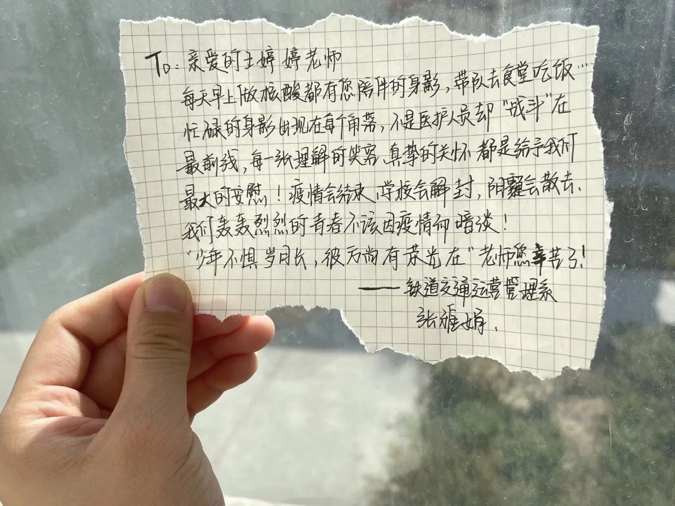 To：亲爱的王婷婷老师
每天早上做核酸都有您陪伴的身影，带队去食堂吃饭…
忙碌的身影出现在每个角落，不是医护人员却“战斗”在
最前线，每一张理解的笑容、真挚的关怀都是给予我们
最大的安慰！疫情会结束、学校会解封，阴霾会散去、
我们轰轰烈烈的青春不该因疫情而暗淡！
“少年不惧岁月长，彼方尚有荣光在”老师您辛苦了！
——铁道交通运营管理系
张雅娟．